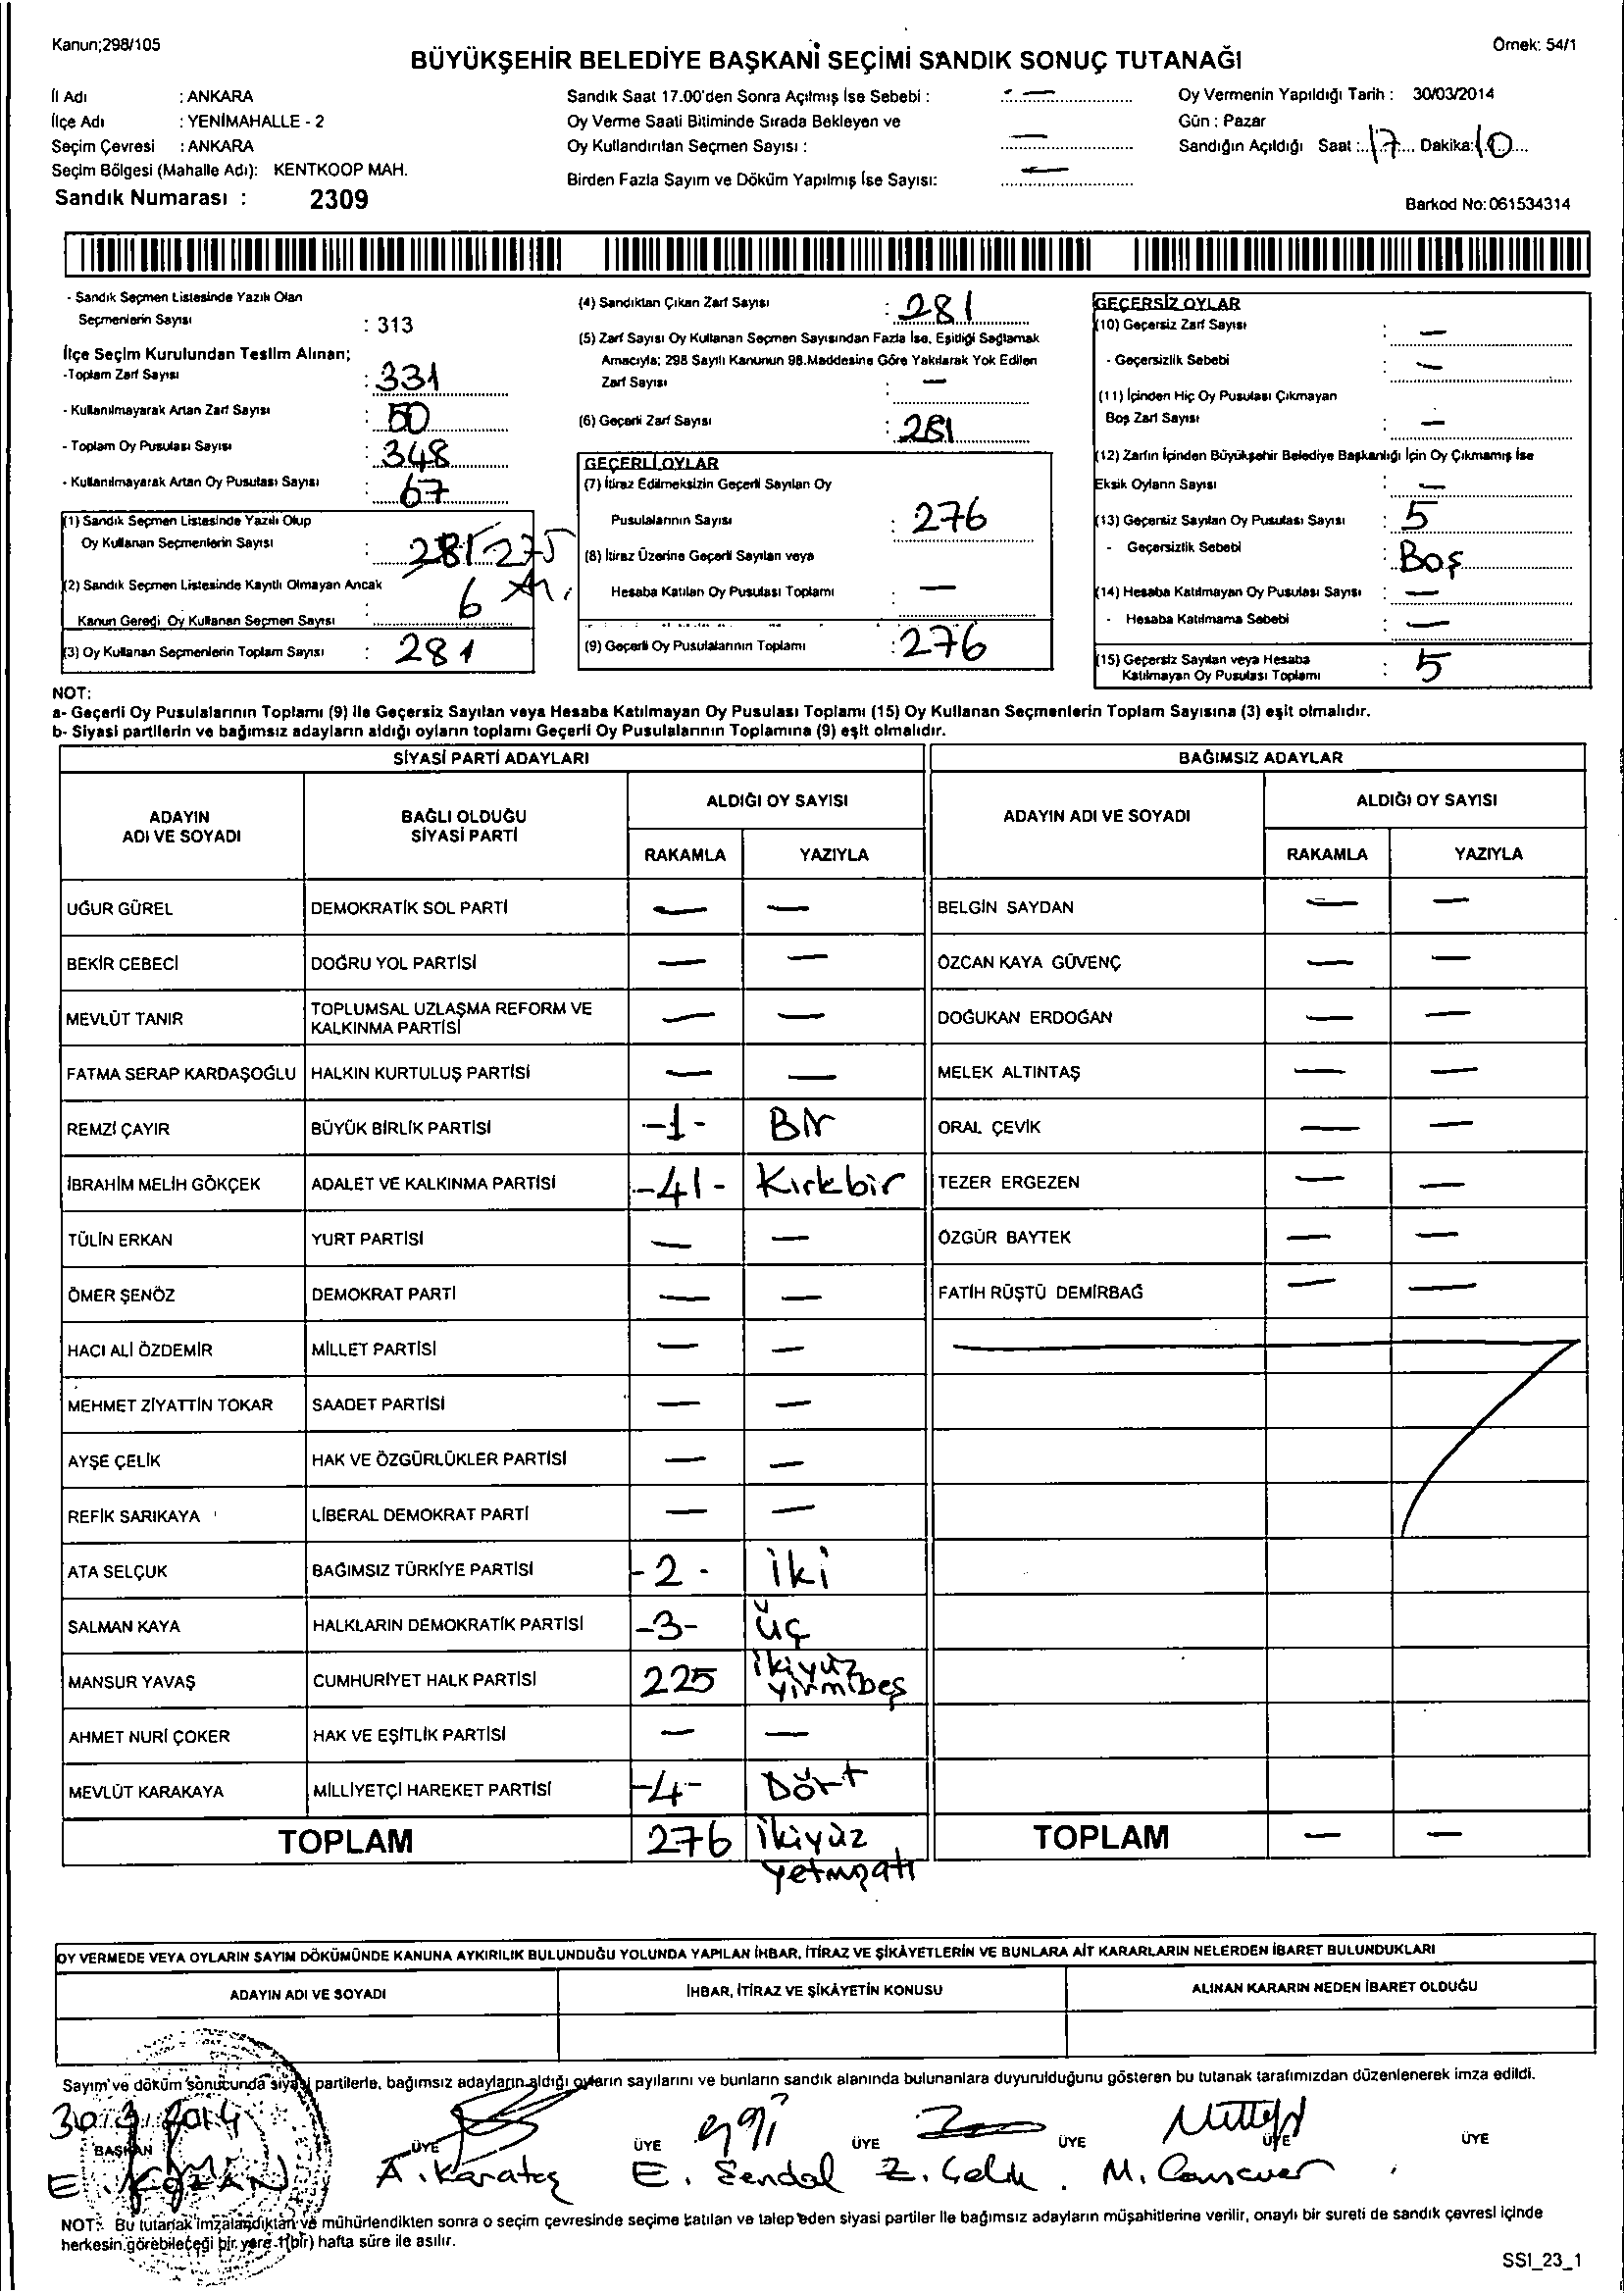 Kanun;298/105
Örnek: 54/1
BÜYÜKŞEHİR BELEDİYE BAŞKANI SEÇİMİ SANDIK SONUÇ TUTANAĞI
İl Adı : ANKARA
İlçe Adı : YENİMAHALLE - 2
Seçim Çevresi : ANKARA
Seçim Bölgesi (Mahalle Adı): KENTKOOP MAH.
Sandık Numarası : 2309
Sandık Saat 17.00'den Sonra Açılmış İse Sebebi : —
Oy Verme Saati Bitiminde Sırada Bekleyen ve
Oy Kullandırılan Seçmen Sayısı : —
Birden Fazla Sayım ve Döküm Yapılmış İse Sayısı: —
Oy Vermenin Yapıldığı Tarih : 30/03/2014
Gün : Pazar
Sandığın Açıldığı Saat : 17 Dakika: 10
Barkod No: 061534314
- Sandık Seçmen Listesinde Yazılı Olan
Seçmenlerin Sayısı : 313
İlçe Seçim Kurulundan Teslim Alınan;
-Toplam Zarf Sayısı : 331
- Kullanılmayarak Artan Zarf Sayısı : 50
- Toplam Oy Pusulası Sayısı : 348
- Kullanılmayarak Artan Oy Pusulası Sayısı : 67
(1) Sandık Seçmen Listesinde Yazılı Olup
Oy Kullanan Seçmenlerin Sayısı : 281 275
(2) Sandık Seçmen Listesinde Kayıtlı Olmayan Ancak
Kanun Gereği Oy Kullanan Seçmen Sayısı : 6
(3) Oy Kullanan Seçmenlerin Toplam Sayısı : 281
(4) Sandıktan Çıkan Zarf Sayısı : 281
(5) Zarf Sayısı Oy Kullanan Seçmen Sayısından Fazla İse, Eşitliği Sağlamak
Amacıyla; 298 Sayılı Kanunun 98.Maddesine Göre Yakılarak Yok Edilen
Zarf Sayısı : —
(6) Geçerli Zarf Sayısı : 281
GEÇERLİ OYLAR
(7) İtiraz Edilmeksizin Geçerli Sayılan Oy
Pusulalarının Sayısı : 276
(8) İtiraz Üzerine Geçerli Sayılan veya
Hesaba Katılan Oy Pusulası Toplamı : —
(9) Geçerli Oy Pusulalarının Toplamı : 276
GEÇERSİZ OYLAR
(10) Geçersiz Zarf Sayısı : —
- Geçersizlik Sebebi : —
(11) İçinden Hiç Oy Pusulası Çıkmayan
Boş Zarf Sayısı : —
(12) Zarfın İçinden Büyükşehir Belediye Başkanlığı İçin Oy Çıkmamış İse
Eksik Oyların Sayısı : —
(13) Geçersiz Sayılan Oy Pusulası Sayısı : 5
- Geçersizlik Sebebi : Boş
(14) Hesaba Katılmayan Oy Pusulası Sayısı : —
- Hesaba Katılmama Sebebi : —
(15) Geçersiz Sayılan veya Hesaba
Katılmayan Oy Pusulası Toplamı : 5
NOT:
a- Geçerli Oy Pusulalarının Toplamı (9) ile Geçersiz Sayılan veya Hesaba Katılmayan Oy Pusulası Toplamı (15) Oy Kullanan Seçmenlerin Toplam Sayısına (3) eşit olmalıdır.
b- Siyasi partilerin ve bağımsız adayların aldığı oyların toplamı Geçerli Oy Pusulalarının Toplamına (9) eşit olmalıdır.
SİYASİ PARTİ ADAYLARI
BAĞIMSIZ ADAYLAR
ADAYIN
ADI VE SOYADI
BAĞLI OLDUĞU
SİYASİ PARTİ
ALDIĞI OY SAYISI
RAKAMLA YAZIYLA
ADAYIN ADI VE SOYADI
ALDIĞI OY SAYISI
RAKAMLA YAZIYLA
UĞUR GÜREL DEMOKRATİK SOL PARTİ — — BELGİN SAYDAN — —
BEKİR CEBECİ DOĞRU YOL PARTİSİ — — ÖZCAN KAYA GÜVENÇ — —
MEVLÜT TANIR TOPLUMSAL UZLAŞMA REFORM VE
KALKINMA PARTİSİ — — DOĞUKAN ERDOĞAN — —
FATMA SERAP KARDAŞOĞLU HALKIN KURTULUŞ PARTİSİ — — MELEK ALTINTAŞ — —
REMZİ ÇAYIR BÜYÜK BİRLİK PARTİSİ -1- Bir ORAL ÇEVİK — —
İBRAHİM MELİH GÖKÇEK ADALET VE KALKINMA PARTİSİ -41- Kırkbir TEZER ERGEZEN — —
TÜLİN ERKAN YURT PARTİSİ — — ÖZGÜR BAYTEK — —
ÖMER ŞENÖZ DEMOKRAT PARTİ — — FATİH RÜŞTÜ DEMİRBAĞ — —
HACI ALİ ÖZDEMİR MİLLET PARTİSİ — —
MEHMET ZİYATTİN TOKAR SAADET PARTİSİ — —
AYŞE ÇELİK HAK VE ÖZGÜRLÜKLER PARTİSİ — —
REFİK SARIKAYA LİBERAL DEMOKRAT PARTİ — —
ATA SELÇUK BAĞIMSIZ TÜRKİYE PARTİSİ -2- iki
SALMAN KAYA HALKLARIN DEMOKRATİK PARTİSİ -3- üç
MANSUR YAVAŞ CUMHURİYET HALK PARTİSİ 225 ikiyüz
yirmibeş
AHMET NURİ ÇOKER HAK VE EŞİTLİK PARTİSİ — —
MEVLÜT KARAKAYA MİLLİYETÇİ HAREKET PARTİSİ -4- Dört
TOPLAM 276 ikiyüz
yetmişaltı
TOPLAM — —
OY VERMEDE VEYA OYLARIN SAYIM DÖKÜMÜNDE KANUNA AYKIRILIK BULUNDUĞU YOLUNDA YAPILAN İHBAR, İTİRAZ VE ŞİKÂYETLERİN VE BUNLARA AİT KARARLARIN NELERDEN İBARET BULUNDUKLARI
ADAYIN ADI VE SOYADI İHBAR, İTİRAZ VE ŞİKÂYETİN KONUSU ALINAN KARARIN NEDEN İBARET OLDUĞU
Sayım ve döküm sonucunda siyasi partilerle, bağımsız adayların aldığı oyların sayılarını ve bunların sandık alanında bulunanlara duyurulduğunu gösteren bu tutanak tarafımızdan düzenlenerek imza edildi.
30.3.2014
BAŞKAN ÜYE ÜYE ÜYE ÜYE ÜYE ÜYE
E. A. Karataş E. Z. Çelik M.
NOT: Bu tutanak imzalandıktan ve mühürlendikten sonra o seçim çevresinde seçime katılan ve talep eden siyasi partiler ile bağımsız adayların müşahitlerine verilir, onaylı bir sureti de sandık çevresi içinde
herkesin görebileceği bir yere 1(bir) hafta süre ile asılır.
SSI_23_1